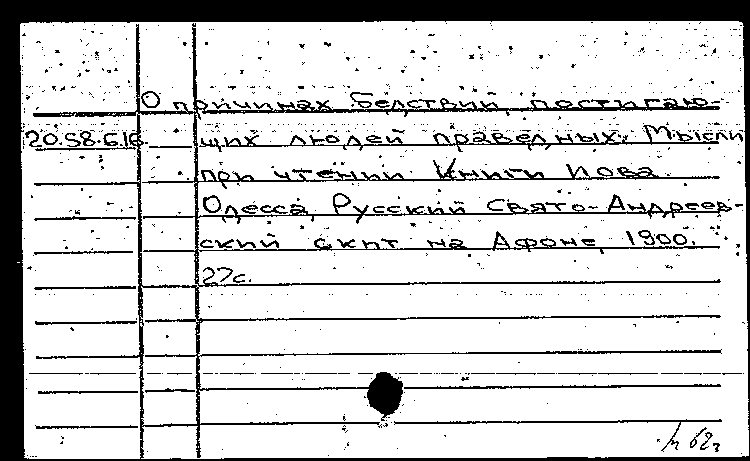 О причинах бедствий, постигаю-
20.58.6.16. щих людей праведных. Мысли
при чтении Книги Иова.
Одесса, Русский Свято-Андреев-
ский скит на Афоне, 1900.
27с.